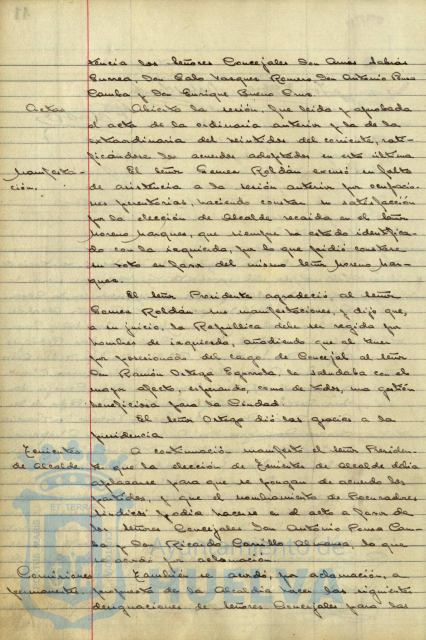 tencia los señores Concejales Don Amós Sabrás
Gurrea, Don Galo Vazquez Romero, Don Antonio Pousa
Camba y Don Enrique Bueno Cruz.
Actas Abierta la sesión, fue leida y aprobada
el acta de la ordinaria anterior y la de la
extraordinaria del veintidos del corriente, rati-
ficandose los acuerdos adoptados en esta última.
Manifesta- El señor Gomez Roldán excusó su falta
ción. de asistencia a la sesión anterior por ocupacio-
nes perentorias, haciendo constar su satisfacción
por la elección de Alcalde recaida en el señor
Moreno Marquez, que siempre ha estado identifica-
do con la izquierda, por lo que pidió constara
su voto en favor del mismo señor Moreno Mar-
quez.
El señor Presidente agradeció al señor
Gomez Roldán sus manifestaciones, y dijo que,
a su juicio, la Republica debe ser regida por
hombres de izquierda, añadiendo que al tener
por posesionado del cargo de Concejal al señor
Don Ramón Ortega la saludaba con el
mayor afecto, esperando, como de todos, una gestión
beneficiosa para la Ciudad.
El señor Ortega dió las gracias a la
presidencia
Tenientes A continuación manifestó el señor Presiden-
de Alcalde te que la elección de Tenientes de Alcalde debia
aplazarse para que se pongan de acuerdo los
partidos, y que el nombramiento de Procuradores
Sindicos podia hacerse en el acto a favor de
los señores Concejales Don Antonio Pousa Cam-
ba y Don Ricardo Carrillo lo que
se acordó por aclamación.
Comisiones También se acordó, por aclamación, a
permanentes. propuesta de la Alcaldia hacer las siguientes
designaciones de señores Concejales para las
Ayuntamiento de
HUELVA